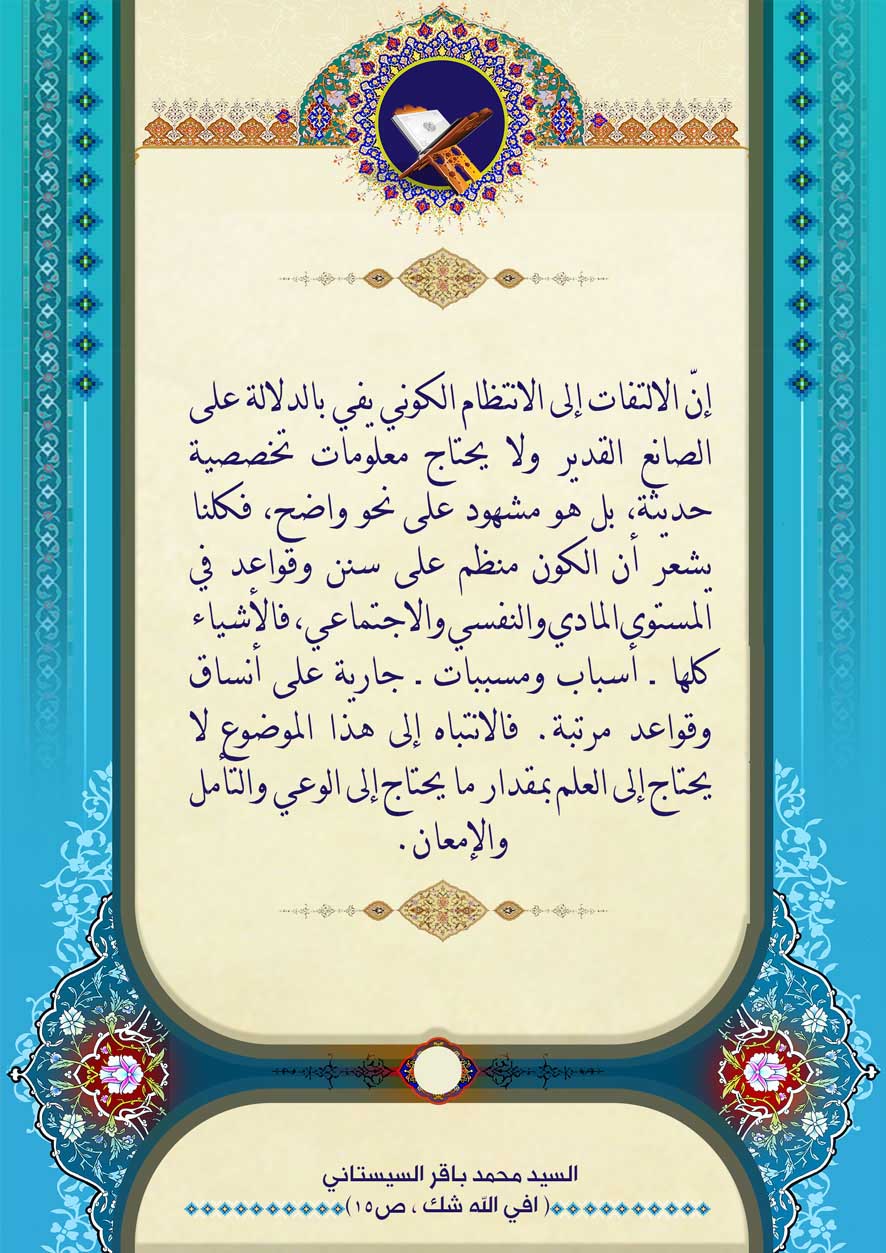 إنّ الالتفات إلى الانتظام الكوني يفي بالدلالة على
الصانع القدير ولا يحتاج معلومات تخصصية
حديثة، بل هو مشهود على نحو واضح، فكلنا
يشعر أن الكون منظم على سنن وقواعد في
المستوى المادي والنفسي والاجتماعي، فالأشياء
كلها ـ أسباب ومسببات ـ جارية على أنساق
وقواعد مرتبة. فالانتباه إلى هذا الموضوع لا
يحتاج إلى العلم بمقدار ما يحتاج إلى الوعي والتأمل
والإمعان.
السيد محمد باقر السيستاني
( افي الله شك ، ص١٥)